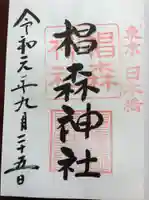 東京 日本橋
椙森
神社
椙森神社
令和元年九月二十五日